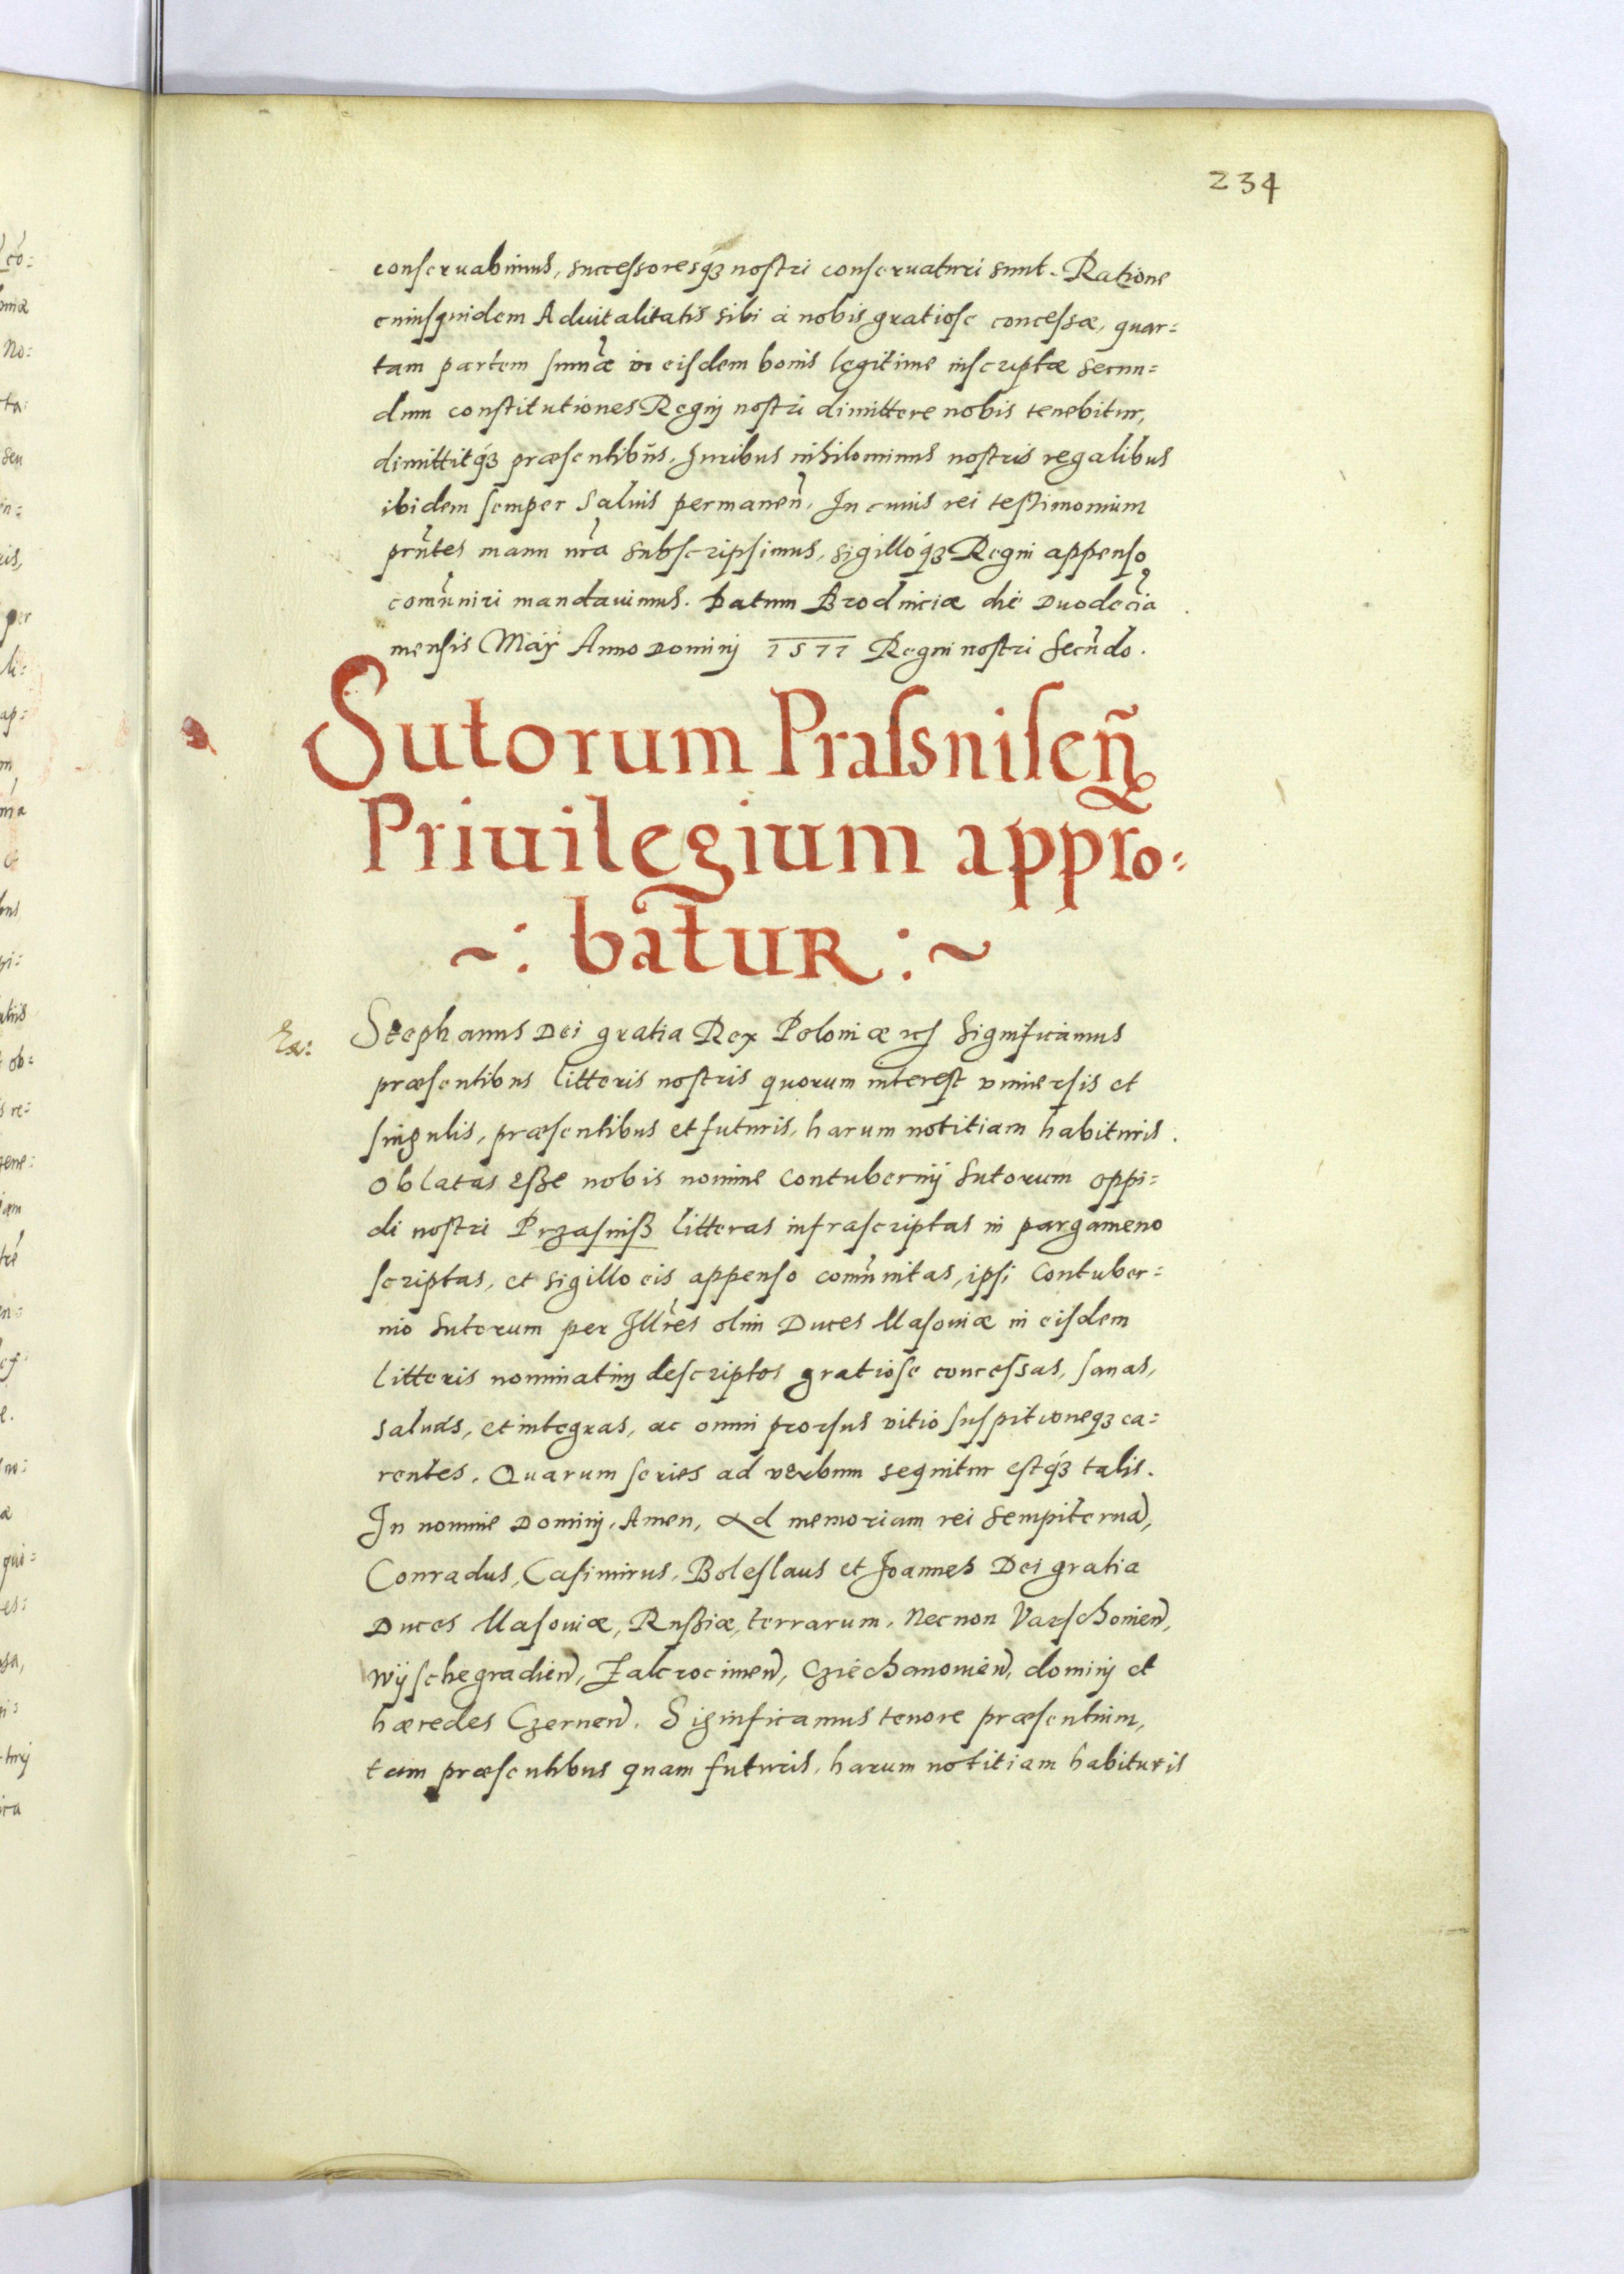 234
conseruabimus, successoresq́ꝫ nostri conseruaturi sunt. Ratione
cuiusquidem Aduitalitatis sibi à nobis gratiose concessæ, quar=
tam partem sum̃æ in eisdem bonis legitime inscriptæ secun=
dum constitutiones Regnj nostri dimittere nobis tenebitur,
dimittitq́ꝫ præsentibus. Juribus nihilominus nostris regalibus
ibidem semper saluis permaneñ. In cuius rei testimonium
prñtes manu nr̃a subscripsimus, sigilloq́ꝫ Regni appenso
com̃uniri mandauimus. Datum Brodniciæ die Duodecĩa
mensis Maÿ Anno Dominj 1577 Regni nostri Secũdo.
Sutorum Prassniseñ
Priuilegium appro=
~: batur :~
Stephanus Dei gratia Rex Poloniæ ꝛcͣ Significamus
præsentibus litteris nostris quorum interest vniuersis et
singulis, præsentibus et futuris, harum notitiam habituris.
Oblatas esse nobis nomine Contubernij Sutorum oppi=
di nostri Przasniß litteras infrascriptas in pargameno
scriptas, et sigillo eis appenso com̃unitas, ipsi Contuber=
nio Sutorum per Illr̃es olim Duces Masouiæ in eisdem
litteris nominatim descriptos gratiose concessas, sanas,
saluas, et integras, ac omni prorsus vitio suspitioneqꝫ ca=
rentes. Quarum series ad verbum sequitur estq́ꝫ talis.
In nomine Dominj, Amen, Ad memoriam rei sempiternã,
Conradus, Casimirus, Boleslaus et Joannes Dei gratia
Duces Masouiæ, Rußiæ, terrarum, Necnon Varschouieñ,
Wÿschegradieñ, Zalcrocimeñ, Cziechanouieñ, dominj et
hæredes Czerneñ. Significamus tenore præsentium,
tam præsentibus quam futuris, harum notitiam habituris